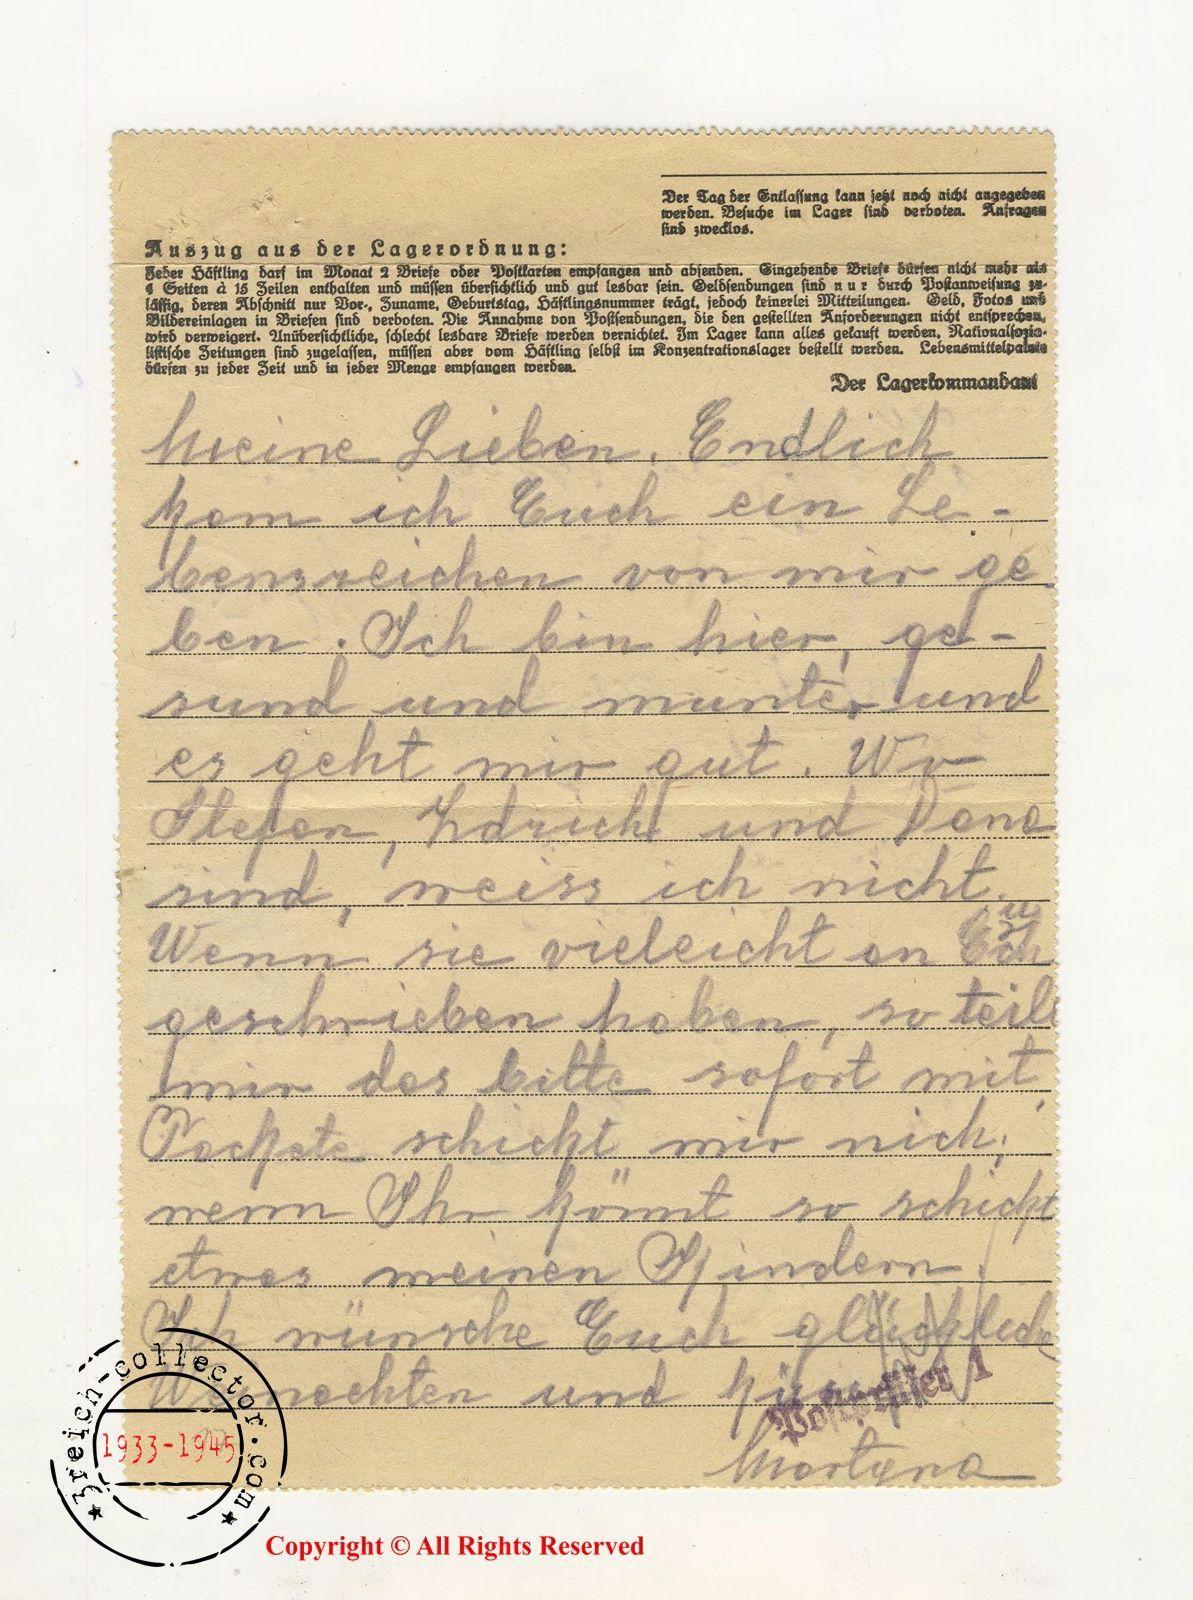 Der Tag der Entlassung kann jetzt noch nicht angegeben
werden. Besuche im Lager sind verboten. Anfragen
sind zwecklos.
Auszug aus der Lagerordnung:
Jeder Häftling darf im Monat 2 Briefe oder Postkarten empfangen und absenden. Eingehende Briefe dürfen nicht mehr als
4 Seiten à 15 Zeilen enthalten und müssen übersichtlich und gut lesbar sein. Geldsendungen sind nur durch Postanweisung zu-
lässig, deren Abschnitt nur Vor-, Zuname, Geburtstag, Häftlingsnummer trägt, jedoch keinerlei Mitteilungen. Geld, Fotos und
Bildereinlagen in Briefen sind verboten. Die Annahme von Postsendungen, die den gestellten Anforderungen nicht entsprechen,
wird verweigert. Unübersichtliche, schlecht lesbare Briefe werden vernichtet. Im Lager kann alles gekauft werden. Nationalsozia-
listische Zeitungen sind zugelassen, müssen aber vom Häftling selbst im Konzentrationslager bestellt werden. Lebensmittelpakete
dürfen zu jeder Zeit und in jeder Menge empfangen werden.
Der Lagerkommandant
Meine Lieben. Endlich
kam ich Euch ein Le-
benszeichen von mir ge
ben. Ich bin hier, ge-
sund und munter und
es geht mir gut. Wo
Stefan, und
sind, weiss ich nicht.
Wenn sie vieleicht an Euch
geschrieben haben, so teilt
mir das bitte sofort mit.
Packete schickt mir nich,
wenn Ihr könnt so schickt
etwas meinen Kindern.
Ich wünsche Euch glückliche
Weinachten und
Postprüfer 1
Martyna
3reich-collector.com
1933-1945
Copyright © All Rights Reserved